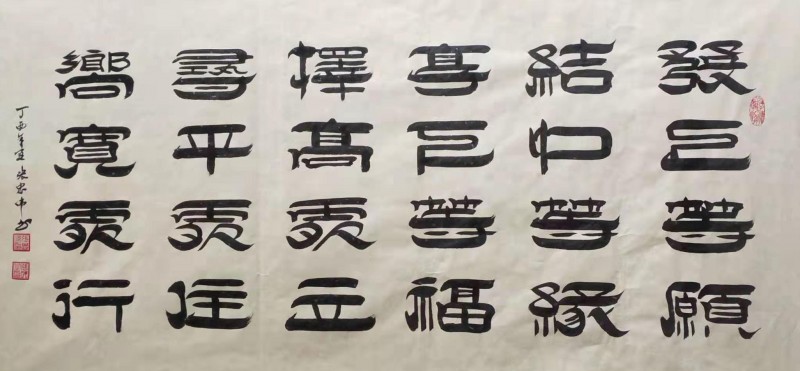 發上等願
結中等緣
享下等福
擇高處立
尋平處住
嚮寬處行
丁酉年